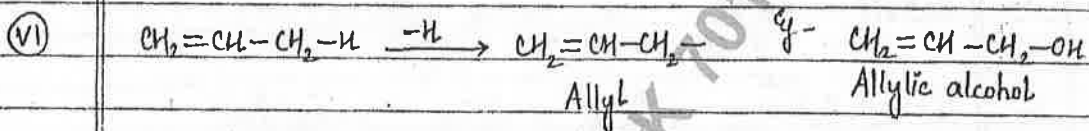 (VI) CH₂=CH-CH₂-H —-H→ CH₂=CH-CH₂- eg- CH₂=CH-CH₂-OH
Allyl Allylic alcohol